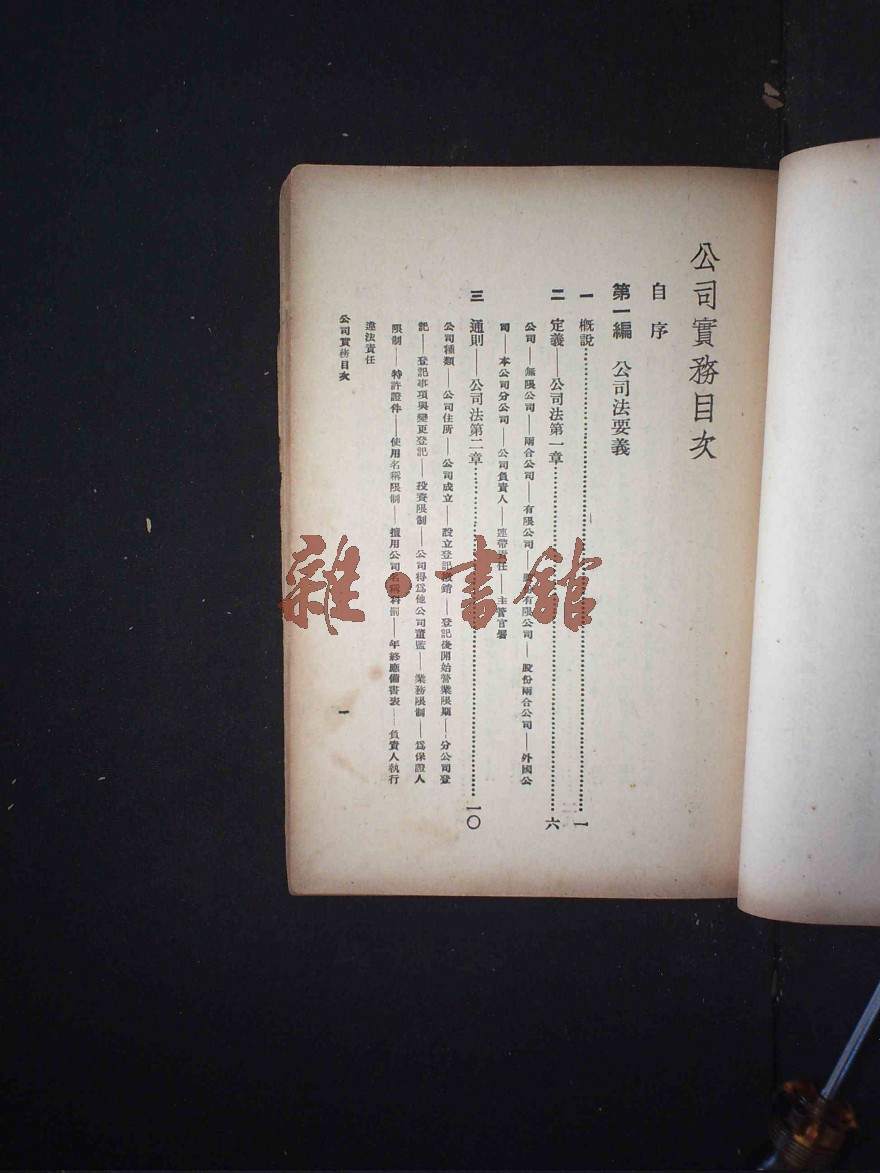 公司實務目次
自序
第一編　公司法要義
一　概說……一
二　定義——公司法第一章……六
公司——無限公司——兩合公司——有限公司——有限公司——股份兩合公司——外國公
司——本公司分公司——公司負責人——連帶責任——主管官署
三　通則——公司法第二章……一〇
公司種類——公司住所——公司成立——設立登記撤銷——登記後開始營業限期——分公司登
記——登記事項與變更登記——投資限制——公司得爲他公司董監——業務限制——爲保證人
限制——特許證件——使用名稱限制——擅用公司名稱科罰——年終應備書表——負責人執行
違法責任
公司實務目次
一
雜·書館